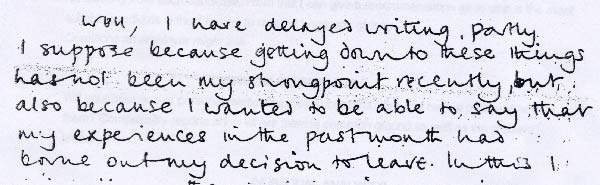 Well, I have delayed writing, partly
I suppose because getting down to these things
has not been my strongpoint recently, but
also because I wanted to be able to say that
my experiences in the past month had
borne out my decision to leave. In this I